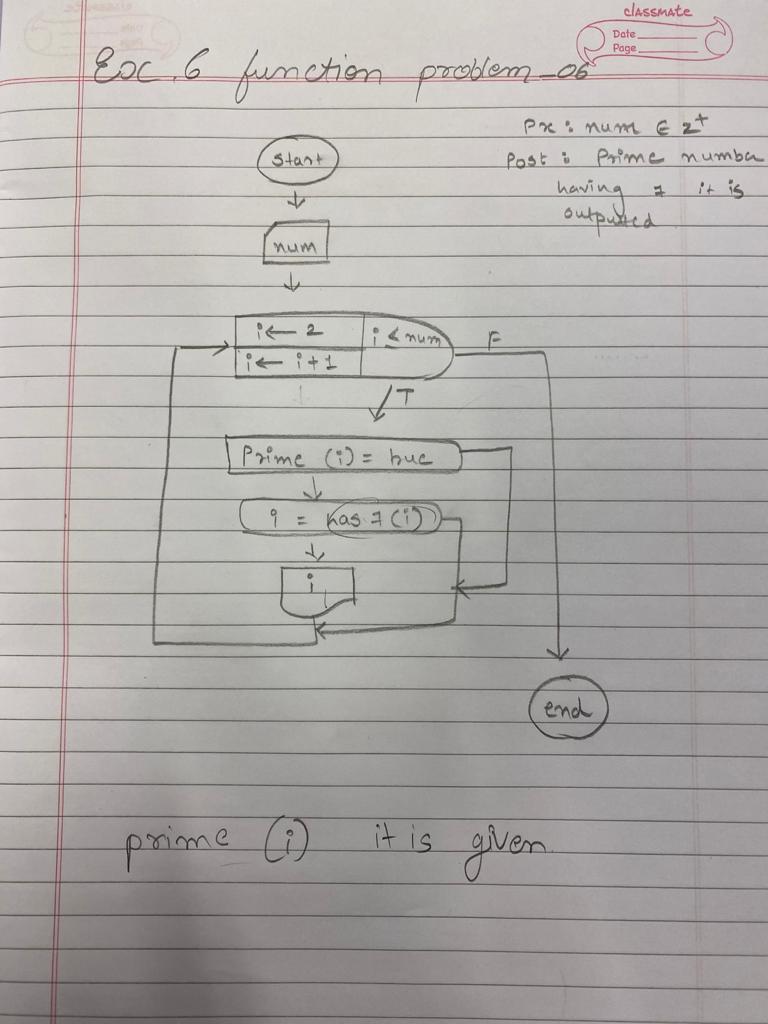 classmate
Date
Page
Exc. 6 function problem_06
Pre : num ∈ z⁺
Post : Prime number
having 7 it is
outputted
start
num
i ← 2
i < num
i ← i + 1
F
T
Prime (i) = true
i = has 7 (i)
i
end
prime (i) it is given